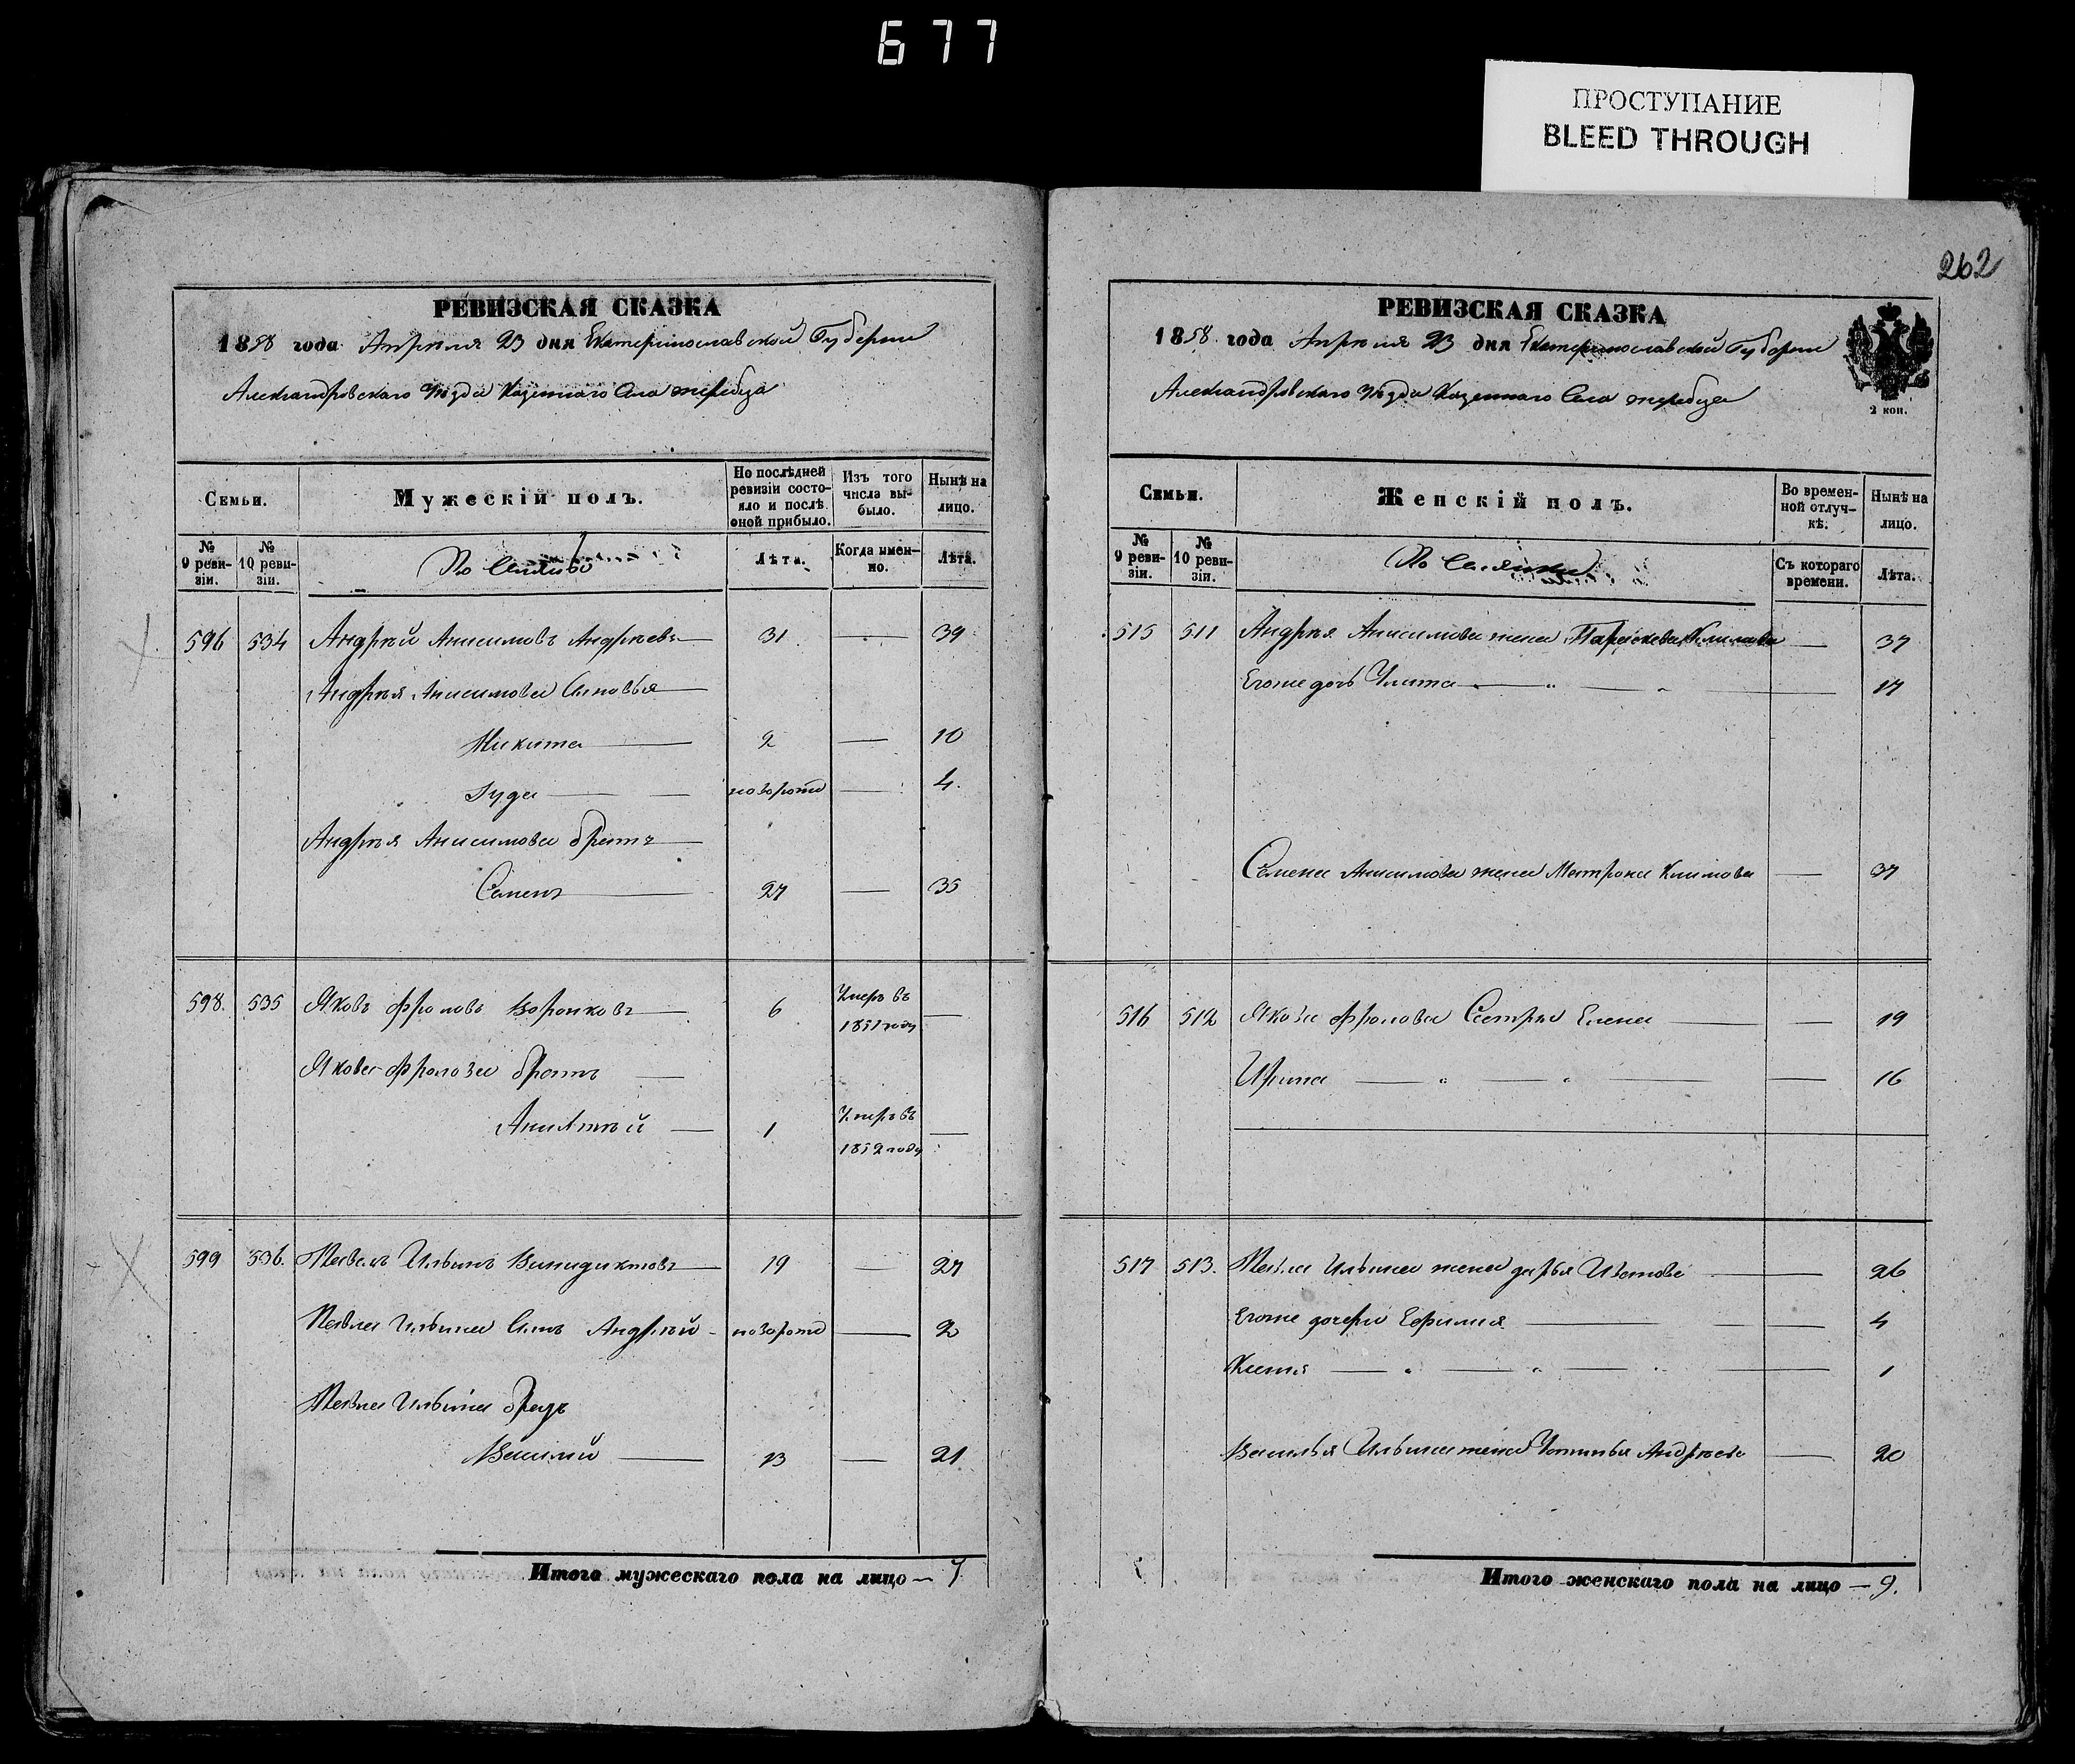 677
ПРОСТУПАНИЕ
BLEED THROUGH
262
РЕВИЗСКАЯ СКАЗКА
1858 года Апреля 23 дня Екатеринославской Губернии
Александровского уѣзда Казеннаго Села жеребца
Семьи.
Мужескій полъ.
По послѣдней ревизіи состояло и послѣ оной прибыло.
Изъ того числа выбыло.
Нынѣ на лицо.
№ 9 ревизіи.
№ 10 ревизіи.
Лѣта.
Когда именно.
Лѣта.
596 534 Андрѣй Анисимовъ Андрѣевъ 31 — 39
Андрѣя Анисимова Сыновья
Никита 2 — 10
Іуда новорож — 4.
Андрѣя Анисимова братъ
Семенъ 27 — 35
598. 535 Яковъ Фроловъ Воронковъ 6 Умеръ въ 1851 году —
Якова Фролова братъ
1 Умеръ въ 1852 году —
599 536. Павелъ Ильинъ Винидиктовъ 19 — 27
Павла Ильина Сынъ Андрѣй новорож — 2
Павла Ильина братъ
Василий 13 — 21
Итого мужескаго пола на лицо — 7
РЕВИЗСКАЯ СКАЗКА
1858 года Апреля 23 дня Екатеринославской Губернии
Александровского уѣзда Казеннаго Села жеребца
2 коп.
Семьи.
Женскій полъ.
Во временной отлучкѣ.
Нынѣ на лицо.
№ 9 ревизіи.
№ 10 ревизіи.
Съ котораго времени.
Лѣта.
515 511 Андрѣя Анисимова жена Параскева Климова — 37
Егоже дочь Улита — " — " — 17
Семена Анисимова жена Матрона Климова — 37
516 512 Якова Фролова Сестры Елена — 19
Ирина — " — " — 16
517 513. Павла Ильина жена дарья Ивановa — 26
Егоже дочери Ефимия — 4
Катя — " — " — 1
Василья Ильина жена Устинья Андрѣева — 20
Итого женскаго пола на лицо — 9.